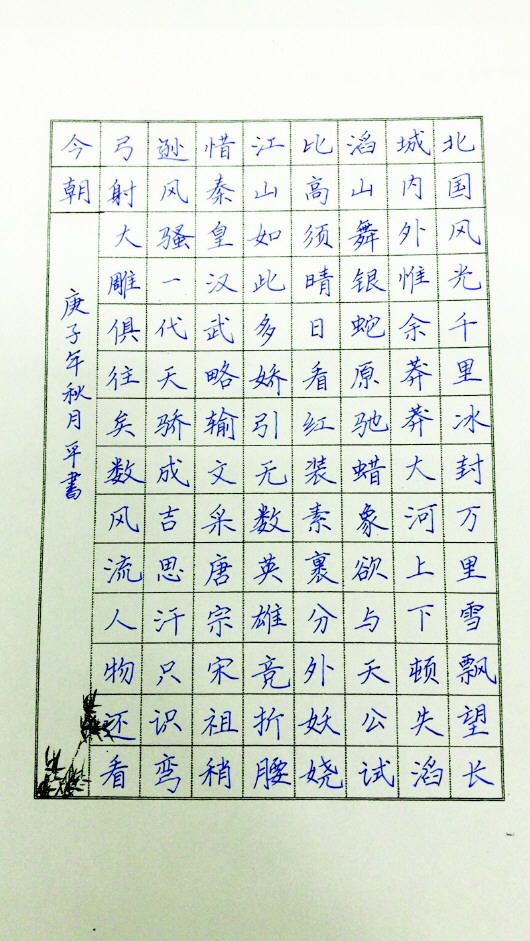 北国风光千里冰封万里雪飘望长
城内外惟余莽莽大河上下顿失滔
滔山舞银蛇原驰蜡象欲与天公试
比高须晴日看红装素裹分外妖娆
江山如此多娇引无数英雄竞折腰
惜秦皇汉武略输文采唐宗宋祖稍
逊风骚一代天骄成吉思汗只识弯
弓射大雕俱往矣数风流人物还看
今朝
庚子年秋月平書